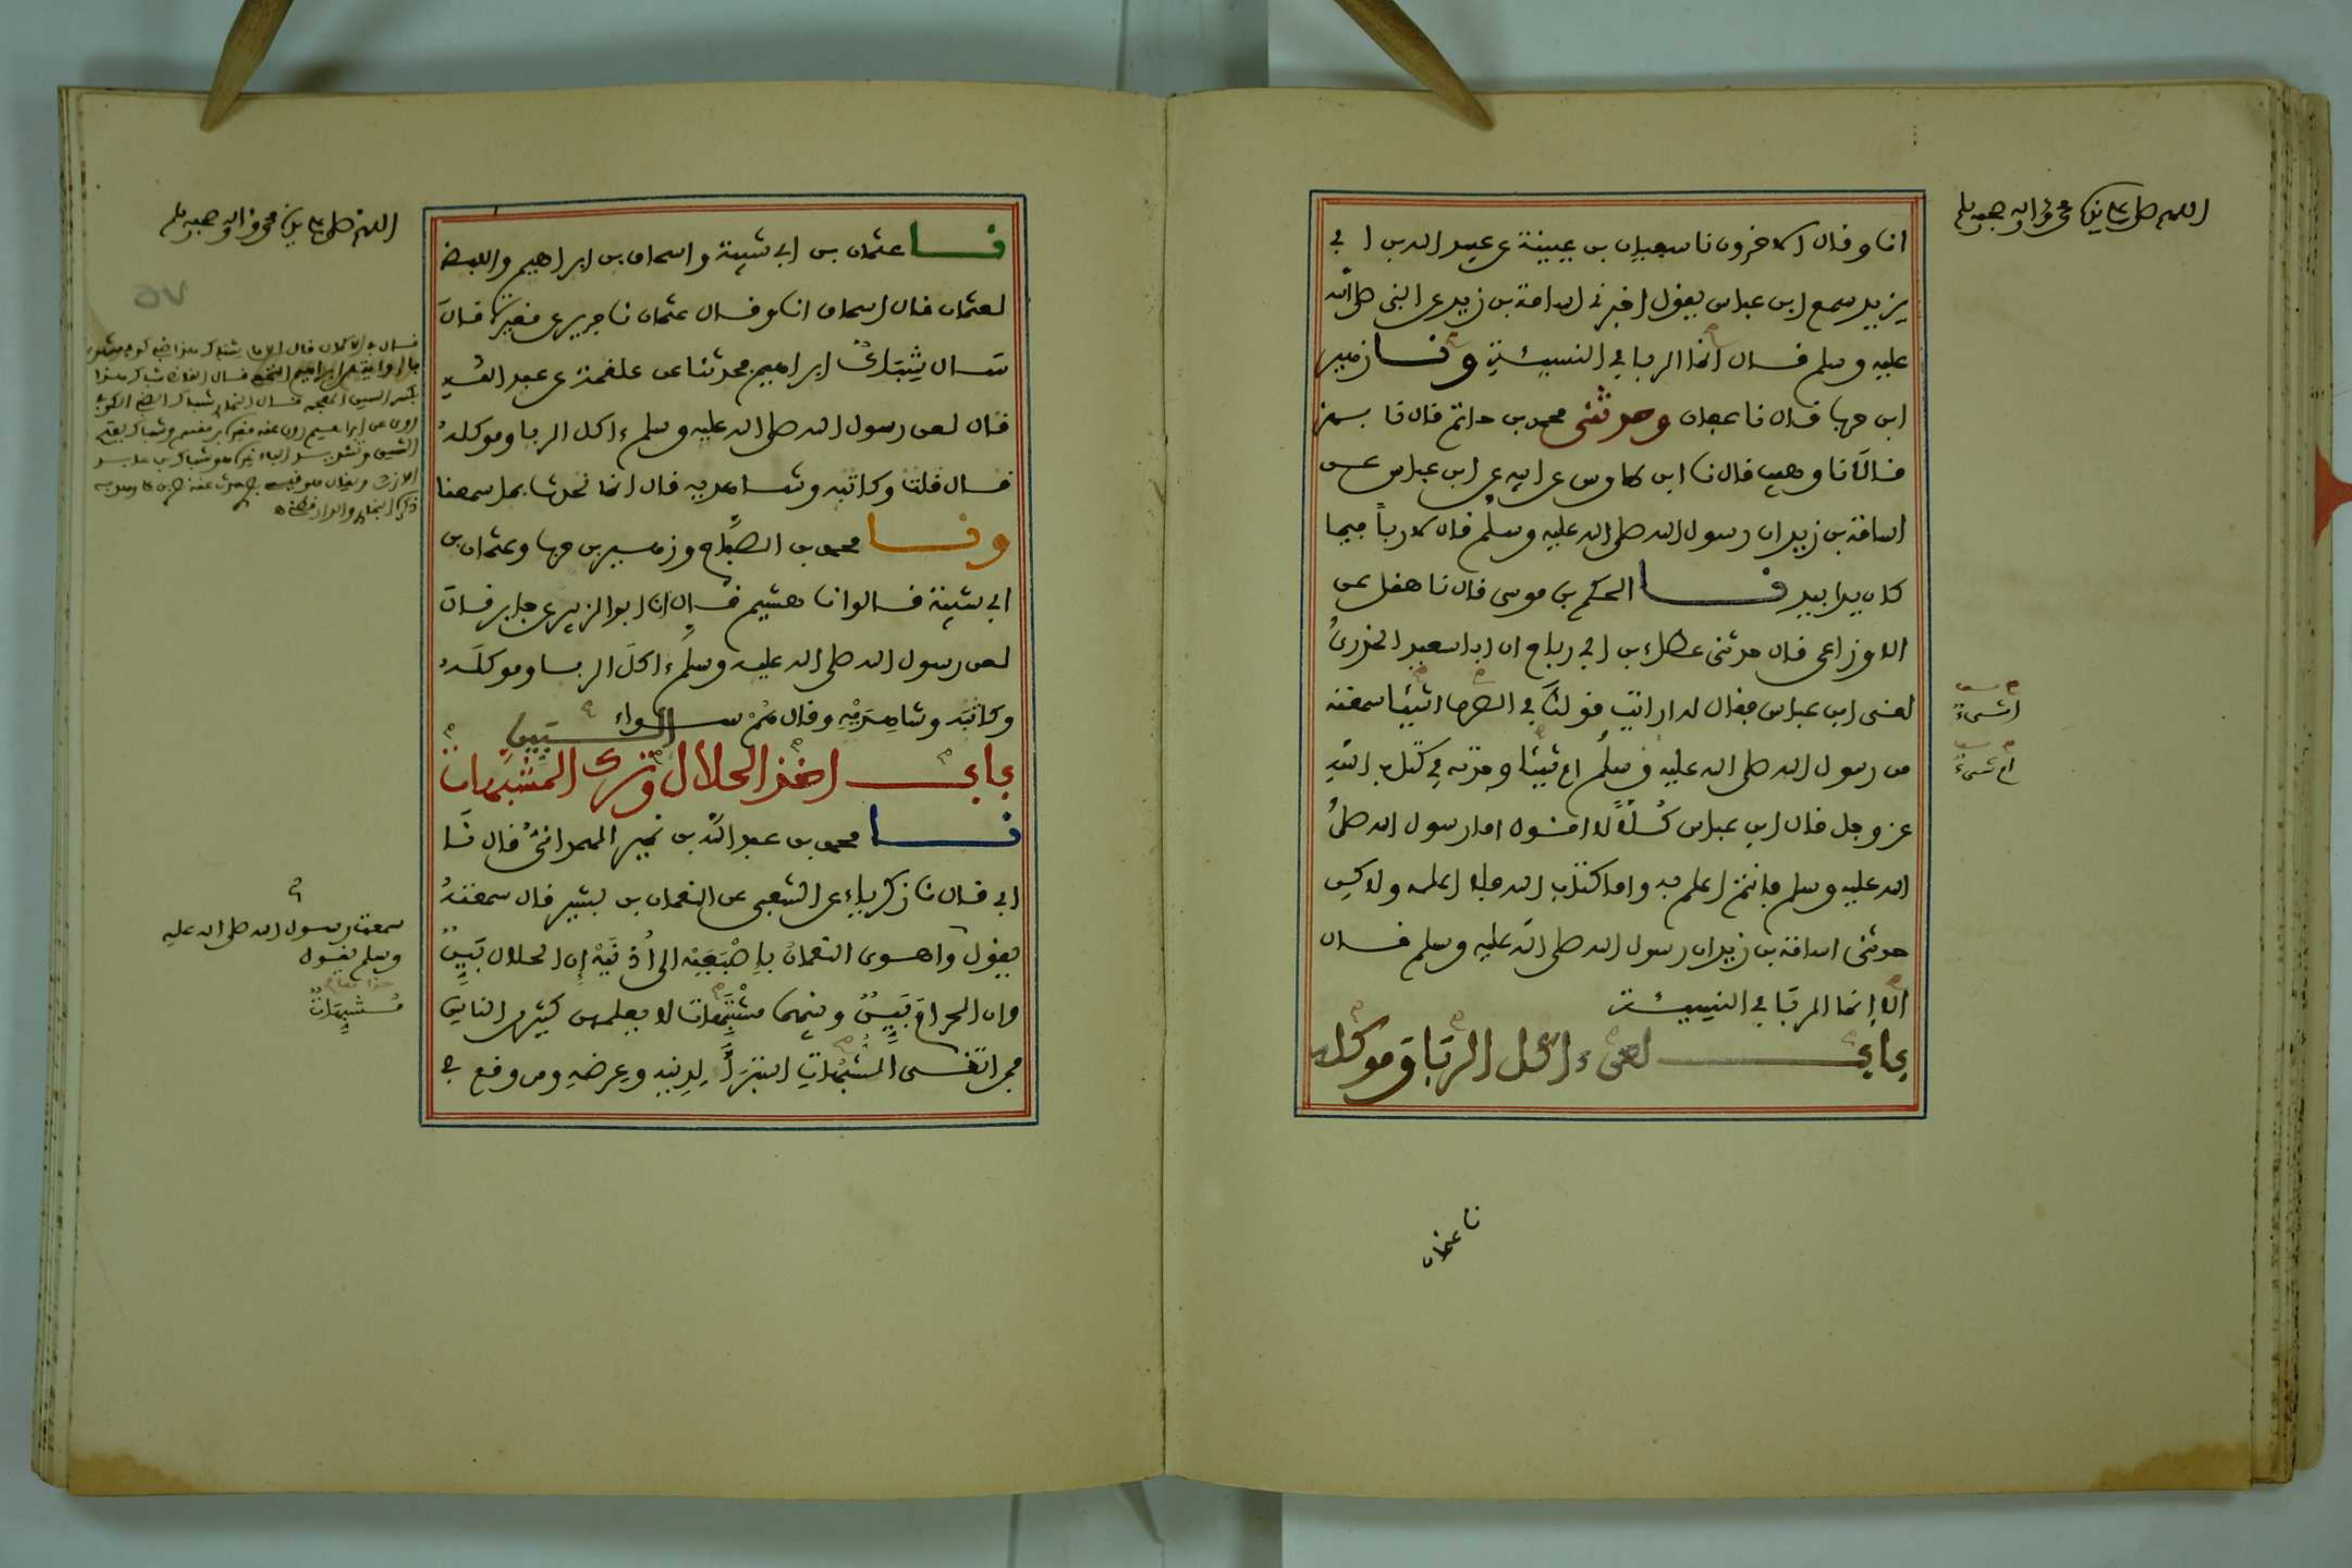 اللهم صل على سيدنا محمد وءاله وصحبه وسلم
انا وقال الاخرون نا سفيان بن عيينة عن عبيد الله بن ابي
يزيد سمع ابن عباس يقول اخبرني اسامة بن زيد عن النبي صلى الله
عليه وسلم قال انما الربا في النسيئة ونا زهير
ابن حرب قال نا عفان وحدثني محمد بن حاتم قال نا بهز
قالا نا وهيب قال نا ابن طاوس عن ابيه عن ابن عباس عن
اسامة بن زيد ان رسول الله صلى الله عليه وسلم قال لا ربا فيما
كان يدا بيد نا الحكم بن موسى قال نا هقل عن
الاوزاعي قال حدثني عطاء بن ابي رباح ان ابا سعيد الخدري
لقي ابن عباس فقال له ارايت قولك في الصرف اشيئا سمعته
من رسول الله صلى الله عليه وسلم ام شيئا وجدته في كتاب الله
عز وجل فقال ابن عباس كلا لا اقول اما رسول الله صلى
الله عليه وسلم فانتم اعلم به واما كتاب الله فلا اعلمه ولاكن
حدثني اسامة بن زيد ان رسول الله صلى الله عليه وسلم قال
الا انما الربا في النسيئة
باب لعن ءاكل الربا وموكله
اشيء
ام شيء
نا عثمان
اللهم صل على سيدنا محمد وءاله وصحبه وسلم
نا عثمان بن ابي شيبة واسحاق بن ابراهيم واللفظ
لعثمان قال اسحاق انا وقال عثمان نا جرير عن مغيرة قال
سال شباك ابراهيم فحدثنا عن علقمة عن عبد الله
قال لعن رسول الله صلى الله عليه وسلم ءاكل الربا وموكله
قال قلت وكاتبه وشاهديه قال انما نحدث بما سمعنا
ونا محمد بن الصباح وزهير بن حرب وعثمان بن
ابي شيبة قالوا نا هشيم قال انا ابو الزبير عن جابر قال
لعن رسول الله صلى الله عليه وسلم ءاكل الربا وموكله
وكاتبه وشاهديه وقال هم سواء
باب اخذ الحلال البين وترك المشتبهات
نا محمد بن عبد الله بن نمير الهمداني قال نا
ابي قال نا زكرياء عن الشعبي عن النعمان بن بشير قال سمعته
يقول واهوى النعمان باصبعيه الى اذنيه ان الحلال بين
وان الحرام بين وبينهما مشتبهات لا يعلمهن كثير من الناس
فمن اتقى الشبهات استبرا لدينه وعرضه ومن وقع في
٥٧
سمعت رسول الله صلى الله عليه
وسلم يقول
مشبهات